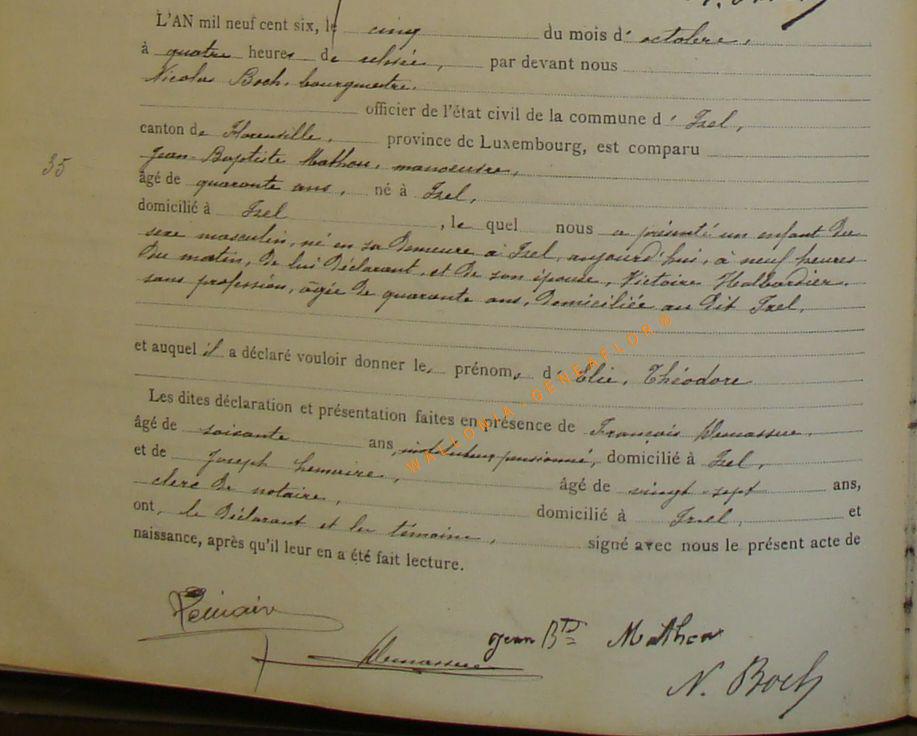 L'AN mil neuf cent six, le cinq du mois d' octobre,
à quatre heures de relevée, par devant nous
Nicolas Boch, bourgmestre,
officier de l'état civil de la commune d' Izel,
canton de Florenville, province de Luxembourg, est comparu
Jean-Baptiste Mathou, manoeuvre,
35
âgé de quarante ans, né à Izel,
domicilié à Izel, le quel nous a présenté un enfant du
sexe masculin, né en sa demeure à Izel, aujourd'hui, à neuf heures
du matin, de lui déclarant, et de son épouse, Victoire Halbardier,
sans profession, âgée de quarante ans, domiciliée au dit Izel,
et auquel il a déclaré vouloir donner les prénoms d' Elie, Théodore
Les dites déclaration et présentation faites en présence de François
âgé de soixante ans, instituteur pensionné, domicilié à Izel,
et de Joseph Lemaire, âgé de vingt-sept ans,
clerc de notaire, domicilié à Izel, et
ont, le déclarant et les témoins, signé avec nous le présent acte de
naissance, après qu'il leur en a été fait lecture.
WALLONIA-GENEAFLOR®
Jean Bte Mathou
N. Boch